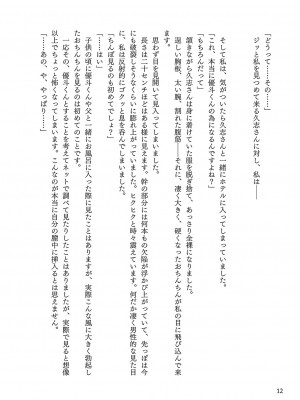 「どうって……その……」
ジッと私を見つめて来る久志さんに対し、私は――
そして、私は、気がついたら久志さんと一緒にホテルに入ってしまっていました。
「これ、本当に優斗くんの為になるんですよね？」
「もちろんだって」
頷きながら久志さんは身に着けていた服を脱ぎ捨て、あっさり全裸になりました。
逞しい胸板、太い腕、割れた腹筋――それに、凄く大きく、硬くなったおちんちんが私の目に飛び込んで来ます。
思わず目を見開いて見入ってしまいました。
長さは二十センチほどはある様に見えます。幹の部分には何本もの欠陥が浮かび上がっていて、先っぽは今にも破裂しそうなくらいに膨れ上がっていました。ヒクヒクと時々震えています。何だか凄く男性的な見た目に、私は反射的にゴクッと息を呑んでしまいました。
「ちんぽ見るのも初めてでしょ？」
「……はい」
子供の頃に優斗くんや父と一緒にお風呂に入った際に見たことはありますが、実際こんな風に大きく勃起したおちんちんを見るのは初めてのことでした。
一応その、優斗くんとすることを考えてネットで調べて見たりしたことはありましたが、実際で見ると想像以上でちょっと怖くなってしまいます。こんなのが本当に自分の膣中に挿入るとは思えません。
「……あの、や、やっぱり……」
12